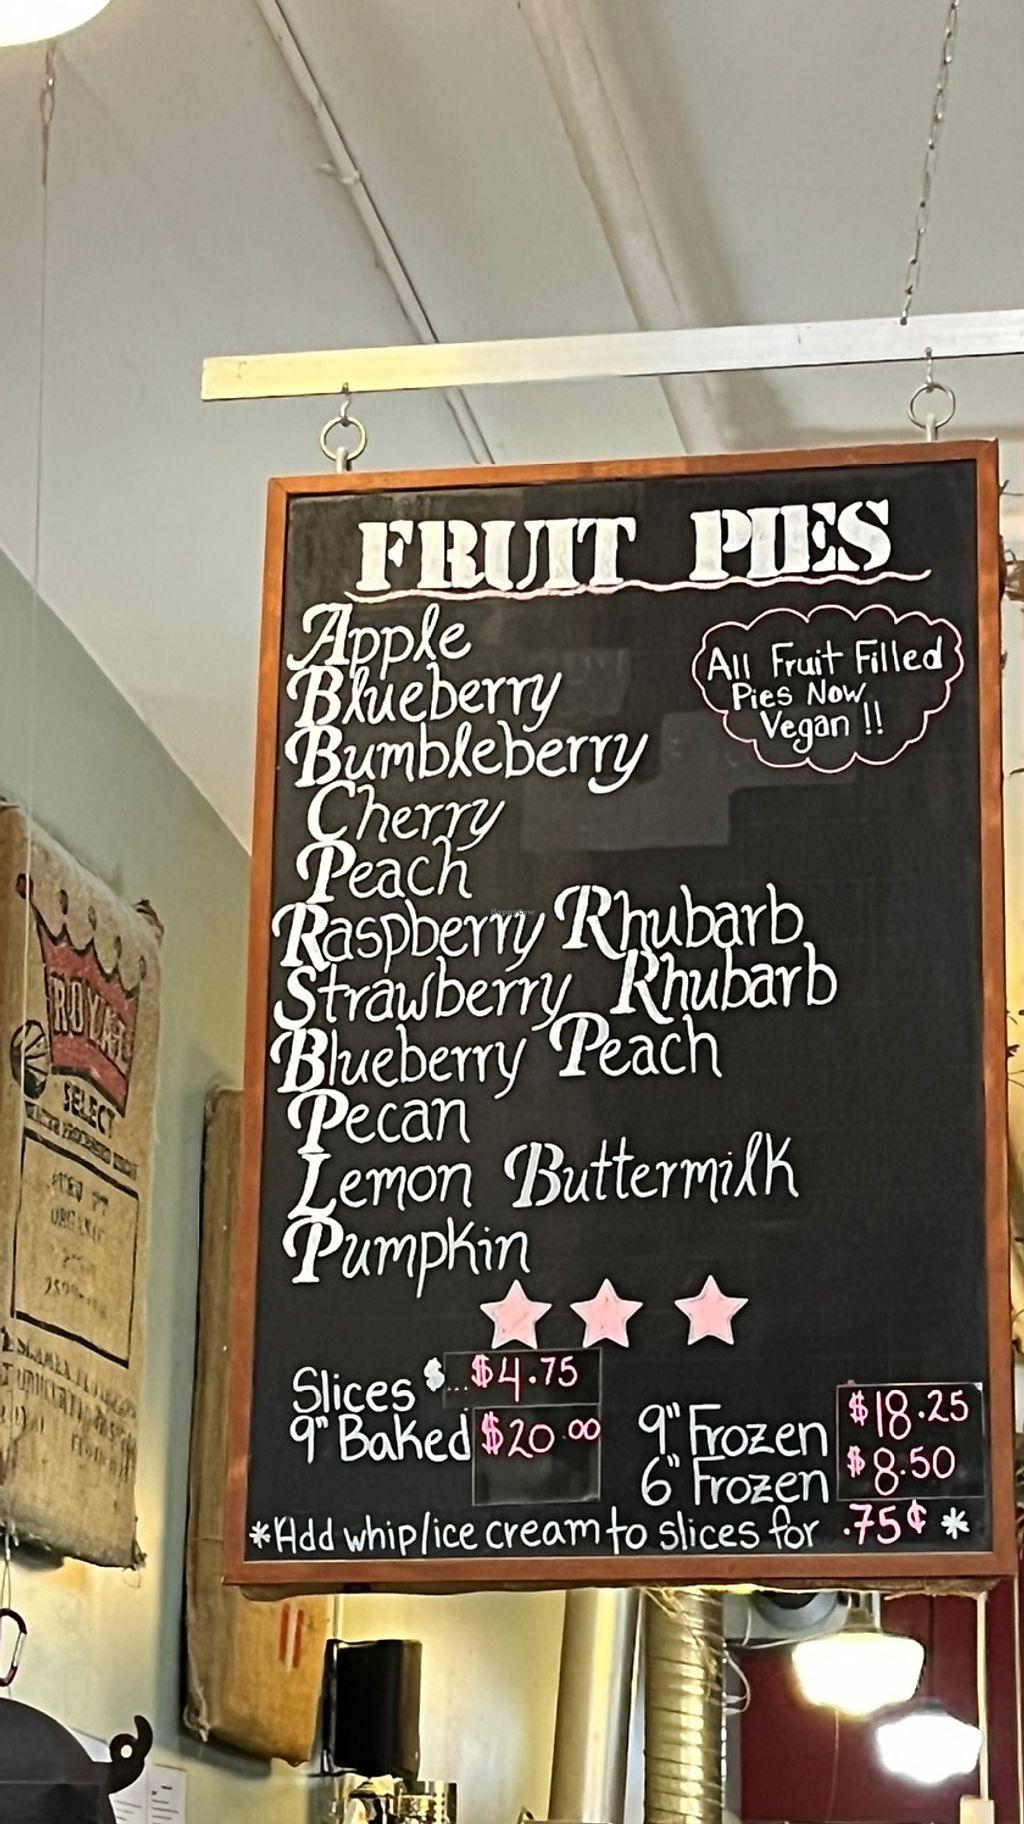 FRUIT PIES
Apple
Blueberry
Bumbleberry
Cherry
Peach
Raspberry Rhubarb
Strawberry Rhubarb
Blueberry Peach
Pecan
Lemon Buttermilk
Pumpkin
All Fruit Filled
Pies Now
Vegan !!
Slices $... $4.75
9" Baked $20.00
9" Frozen $18.25
6" Frozen $8.50
*Add whip/ice cream to slices for .75¢ *
ROYAL
SELECT
HappyCow